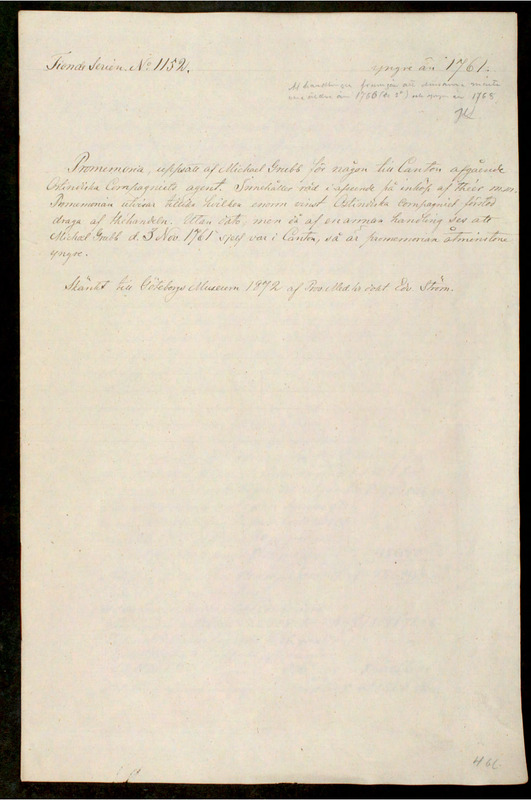 Tionde Serien. No 1152.
yngre än 1761.
Af handlingen framgår att densamma
än 1766 och yngre än 1768
Promemoria, uppsatt af Michael Grubb för någon till Canton afgående
Ostindiska Compagniets agent. Innehåller råd i afseende på inköp af theer m.m.
Promemorian utvisar tillika hvilken enorm vinst Ostindiska Compagniet förstod
draga af thehandeln. Utan dato, men då af en annan handling ses att
Michael Grubb d. 3 Nov. 1761 sjelf var i Canton, så är promemorian åtminstone
yngre.
Skänkt till Göteborgs Museum 1872 af Pro Med. Dokt Edv. Ström.
466